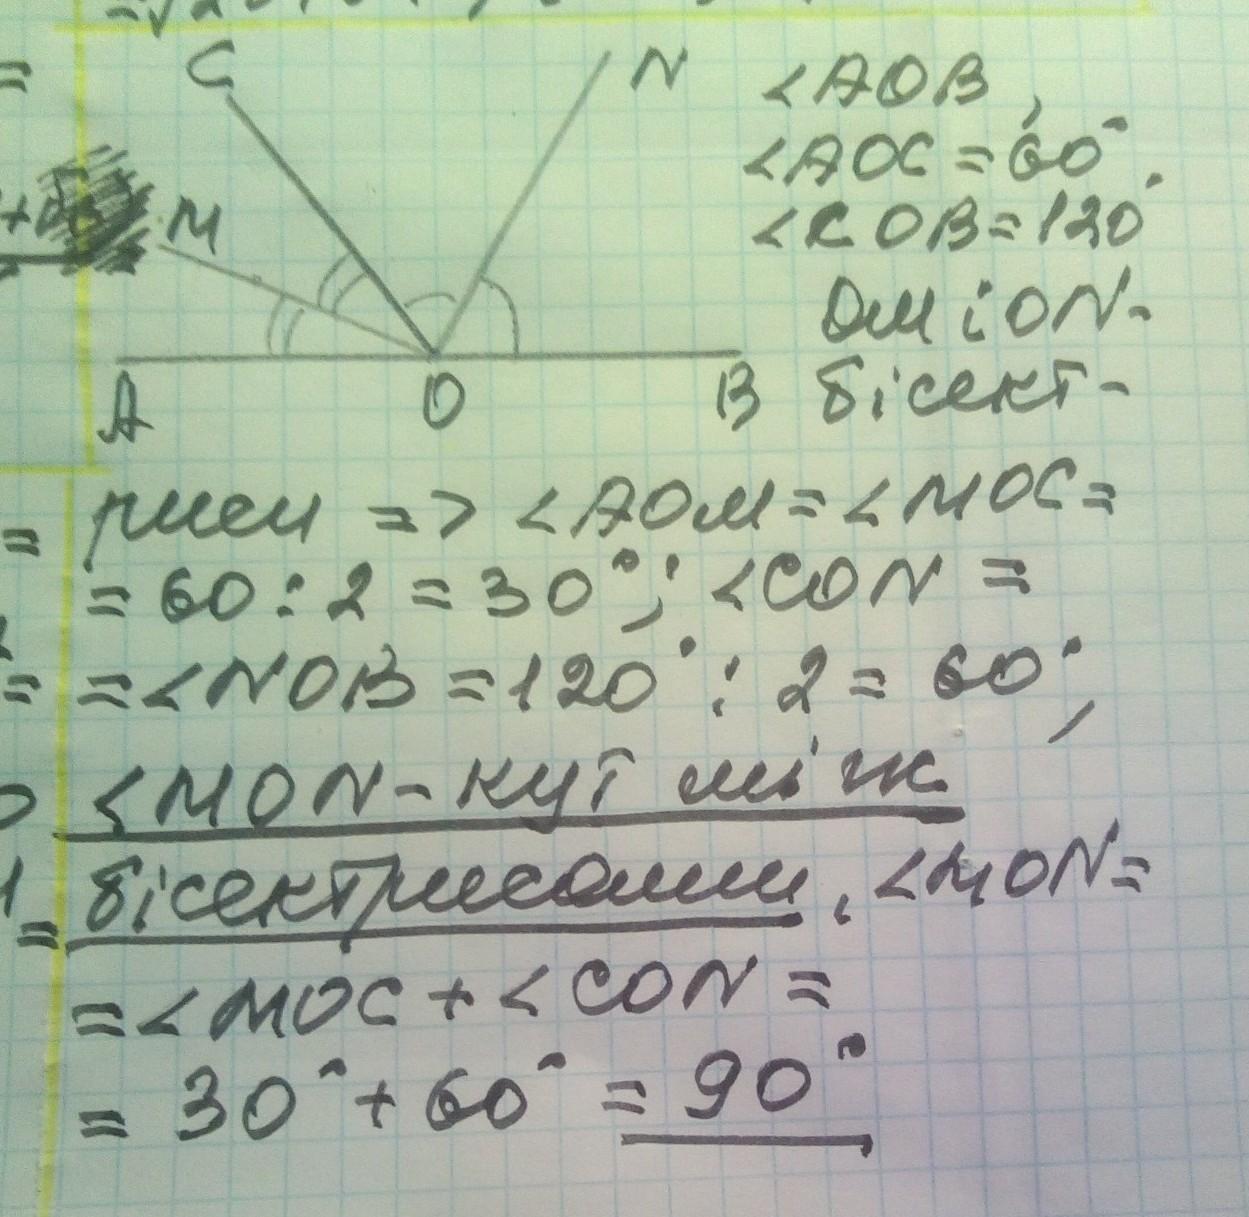 C
N
M
A
O
B
<AOB,
<AOC = 60°.
<COB = 120°
OM і ON -
бісект-
риси => <AOM = <MOC =
= 60 : 2 = 30°; <CON =
= <NOB = 120° : 2 = 60°;
<MON - кут між
бісектрисами. <MON =
= <MOC + <CON =
= 30° + 60° = 90°